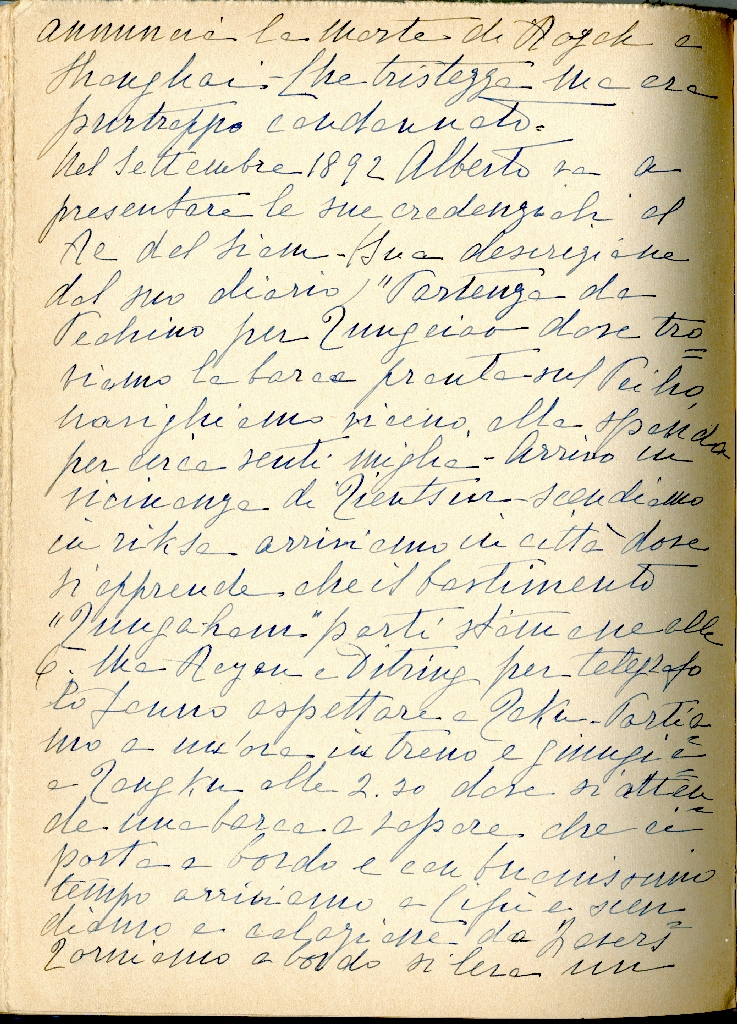 annuncia la morte di Rogak a
Shanghai - Che tristezza ma era
purtroppo condannato.
Nel Settembre 1892 Alberto va a
presentare le sue credenziali al
Re del Siam - (Sua descrizione
dal suo diario) "Partenza da
Pechino per Tungciao dove tro=
viamo la barca pronta sul Peiho,
navighiamo vicino alla sponda
per circa venti miglia - Arrivo in
vicinanza di Tientsin - scendiamo
in riksa arriviamo in città dove
si apprende che il bastimento
"Tungaham" partì stamane alle
6. Ma e Ditring per telegrafo
lo fanno aspettare a Taku - Partia=
mo a un'ora in treno e giungia=
a Tangku alle 2.30 dove si atten=
de una barca a vapore che ci
porta a bordo e con buonissimo
tempo arriviamo a Cifù e scen=
diamo a colazione da
Torniamo a bordo si leva un